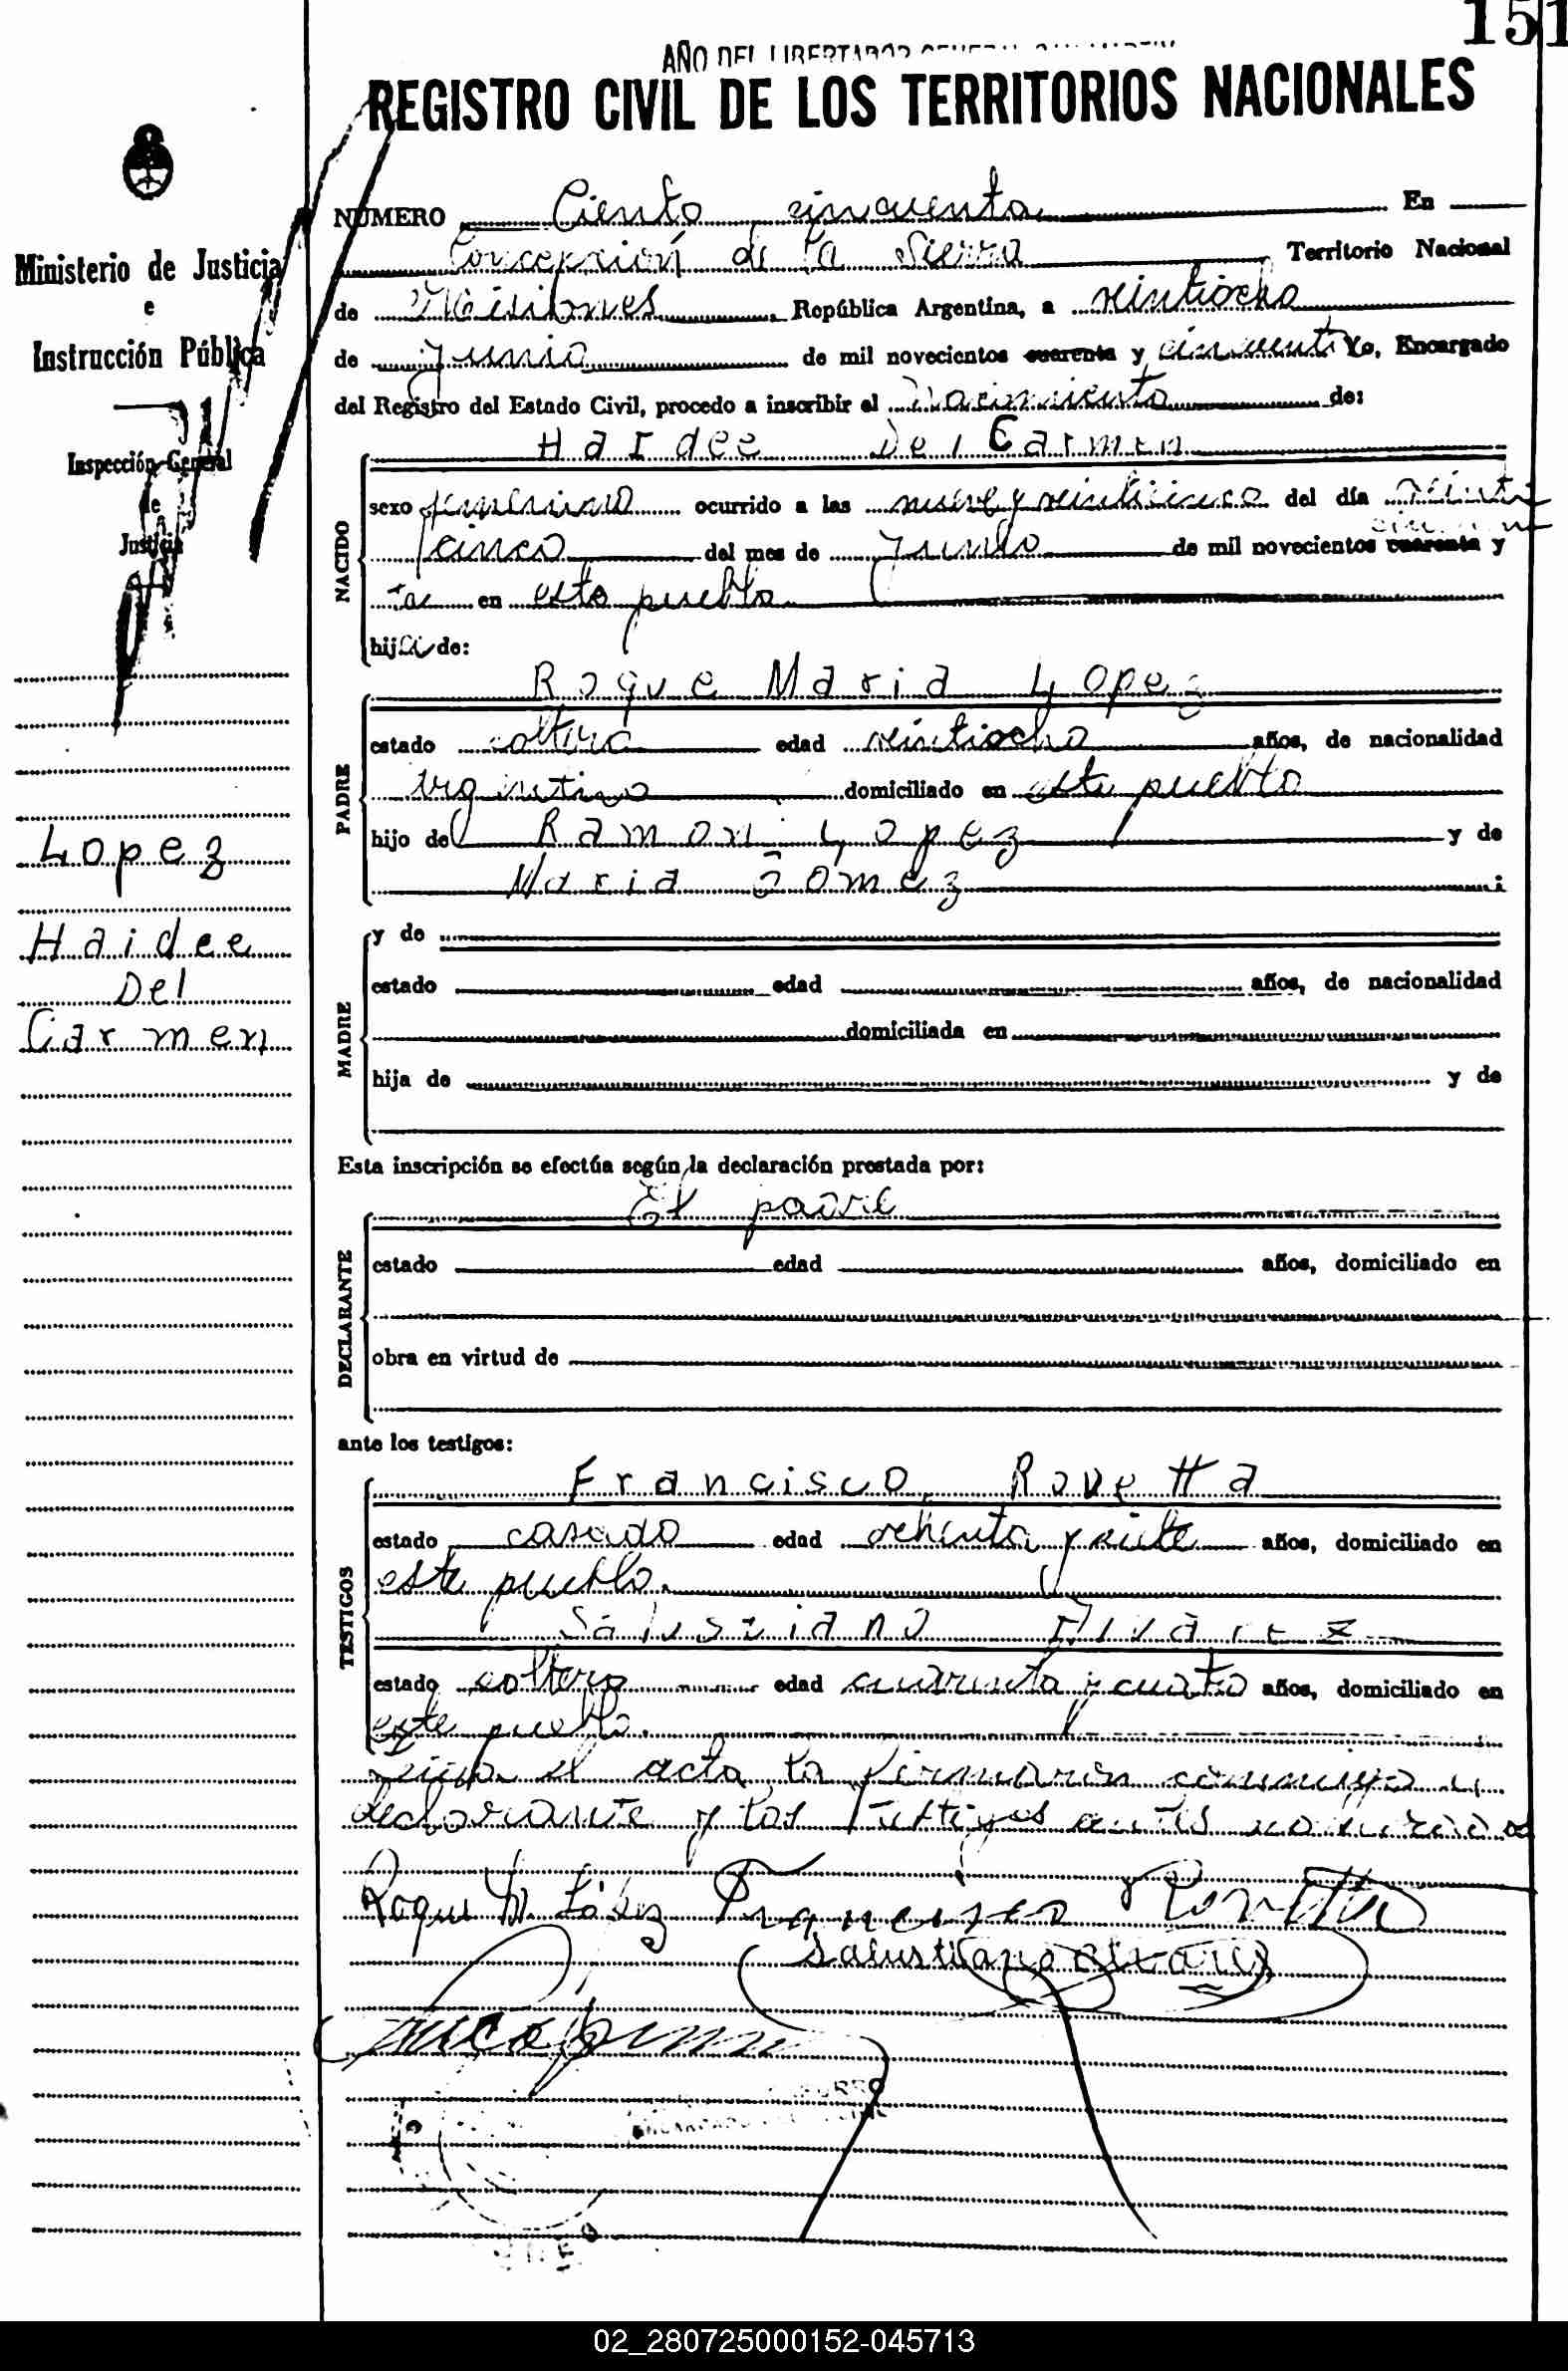 151
AÑO DEL LIBERTADOR GENERAL
REGISTRO CIVIL DE LOS TERRITORIOS NACIONALES
Ministerio de Justicia
e
Instrucción Pública
Inspección General
de
Justicia
Lopez
Haidee
Del
Carmen
NUMERO Ciento cincuenta En
Concepción de la Sierra Territorio Nacional
de Misiones, República Argentina, a veintiocho
de Junio de mil novecientos cuarenta y cincuenta Yo, Encargado
del Registro del Estado Civil, procedo a inscribir el Nacimiento de:
NACIDO
Haidee Del Carmen
sexo femenino ocurrido a las nueve y veinticinco del día veinti
cinco del mes de Junio de mil novecientos cuarenta y cincuen
ta en este pueblo
hija de:
PADRE
Roque Maria Lopez
estado soltero edad veintiocho años, de nacionalidad
argentino domiciliado en este pueblo
hijo de Ramon Lopez y de
Maria Gomez ;
MADRE
y de
estado edad años, de nacionalidad
domiciliada en
hija de y de
Esta inscripción se efectúa según la declaración prestada por:
DECLARANTE
El padre
estado edad años, domiciliado en
obra en virtud de
ante los testigos:
TESTIGOS
Francisco Rovetta
estado casado edad ochenta y siete años, domiciliado en
este pueblo.
Salustiano Alvarez
estado soltero edad cuarenta y cuatro años, domiciliado en
este pueblo.
el acta la firmaron conmigo el
declarante y los testigos antes nombrados
Roque M. López Francisco Rovetta
Salustiano Alvarez
02_280725000152-045713